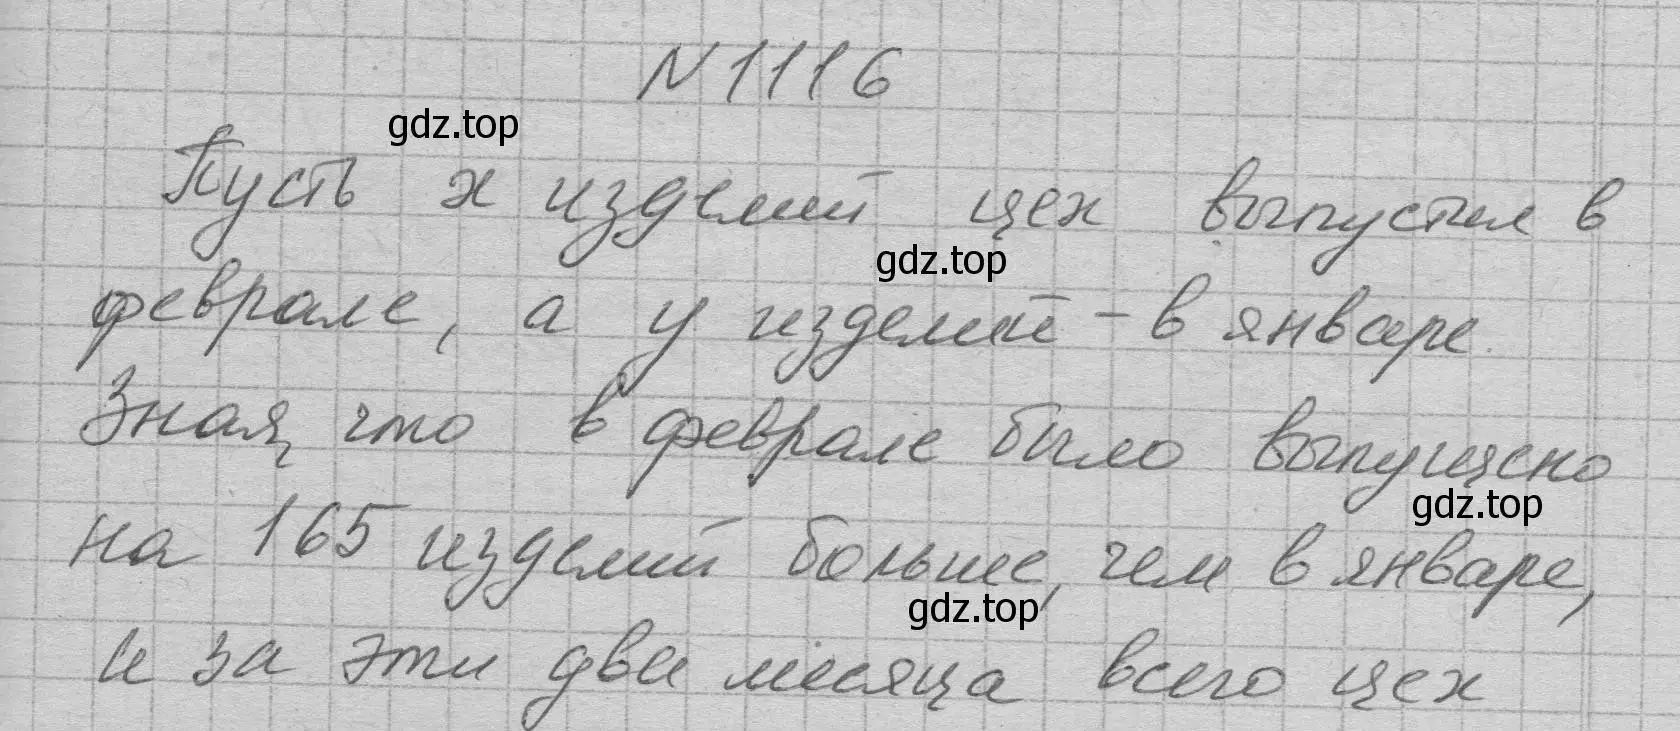 N1116
gdz.top
Пусть x изделий цех выпустил в
gdz.top
феврале, а y изделий - в январе.
Зная, что в феврале было выпущено
gdz.top
на 165 изделий больше, чем в январе,
gdz.top
и за эти два месяца всего цех